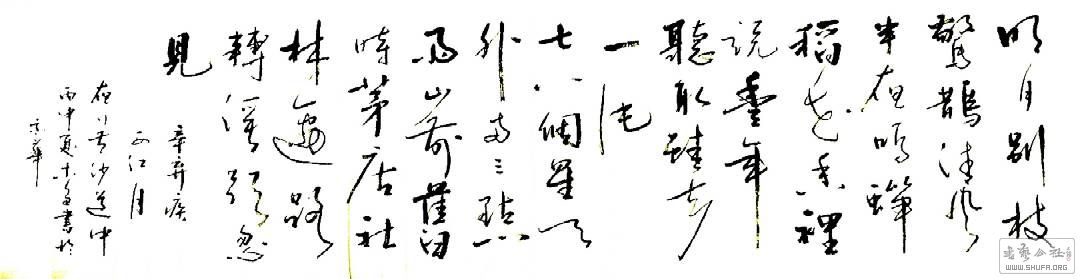 明月别枝
驚鵲清风
半夜鳴蟬
稻花香裡
説豐年
聽取蛙声
一片
七八個星天
外两三點
雨山前舊
時茅店社
林邊路
轉溪頭忽
見
辛弃疾
西江月
夜行黄沙道中
丙申夏書於
京華
书艺公社
WWW.SHUFA.ORG